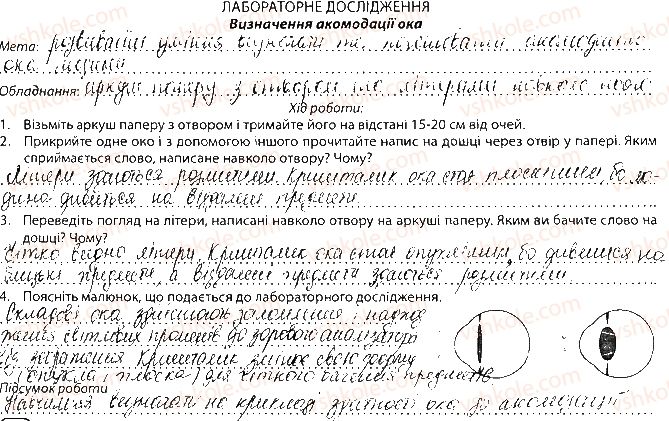 ЛАБОРАТОРНЕ ДОСЛІДЖЕННЯ
Визначення акомодації ока
Мета: розвивати уміння визначати та пояснювати акомодацію
ока людини
Обладнання: аркуш паперу з отвором та літерами навколо нього
Хід роботи:
1. Візьміть аркуш паперу з отвором і тримайте його на відстані 15-20 см від очей.
2. Прикрийте одне око і з допомогою іншого прочитайте напис на дошці через отвір у папері. Яким
сприймається слово, написане навколо отвору? Чому?
Літери здаються розмитими. Кришталик ока стає плоскішим, бо лю-
дина дивиться на віддалені предмети
3. Переведіть погляд на літери, написані навколо отвору на аркуші паперу. Яким ви бачите слово на
дошці? Чому?
Чітко видно літери. Кришталик ока стає опуклішим, бо дивишся на
близькі предмети, а віддалені предмети здаються розмитими
4. Поясніть малюнок, що подається до лабораторного дослідження.
Складові ока заломлення і надход-
ження світлових променів до зорового аналізатора
Кришталик змінює свою форму
(опукла і плоска) для чіткого бачення предметів
Підсумок роботи
Навчилися визначати на прикладі здатності ока до акомодації